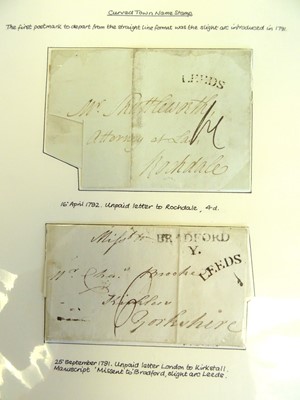 Curved Town Name Stamp
The first postmark to depart from the straight line format was the slight arc introduced in 1791.
LEEDS
Mr. Shuttleworth
Attorney at Law
Rochdale
16 April 1792. Unpaid letter to Rochdale, 4d.
Missent to BRADFORD
Y.
LEEDS
Yorkshire
25 September 1791. Unpaid letter London to Kirkstall.
Manuscript 'Missent to' Bradford, slight arc Leeds.